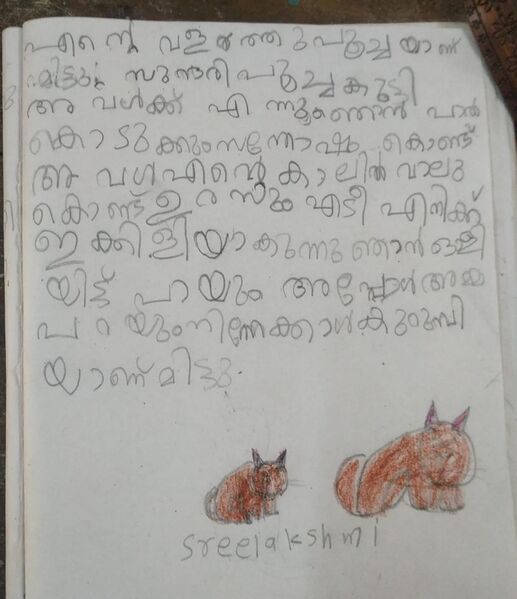 എന്റെ വളർത്തുപൂച്ചയാണ്
മിട്ടു സുന്ദരിപൂച്ചകുട്ടി
അവൾക്ക് എന്നുംഞാൻ പാൽ
കൊടുക്കുംസന്തോഷം കൊണ്ട്
അവൾഎന്റെകാലിൽവാലു
കൊണ്ട്ഉരസുംഎടീ എനിക്ക്
ഇക്കിളിയാകുന്നുഞാൻഒളി
യിട്ട് പായും അപ്പോൾഅമ്മ
പറയുംനിന്നേക്കാൾകുറുമ്പി
യാണ്മിട്ടു.
sreelakshmi